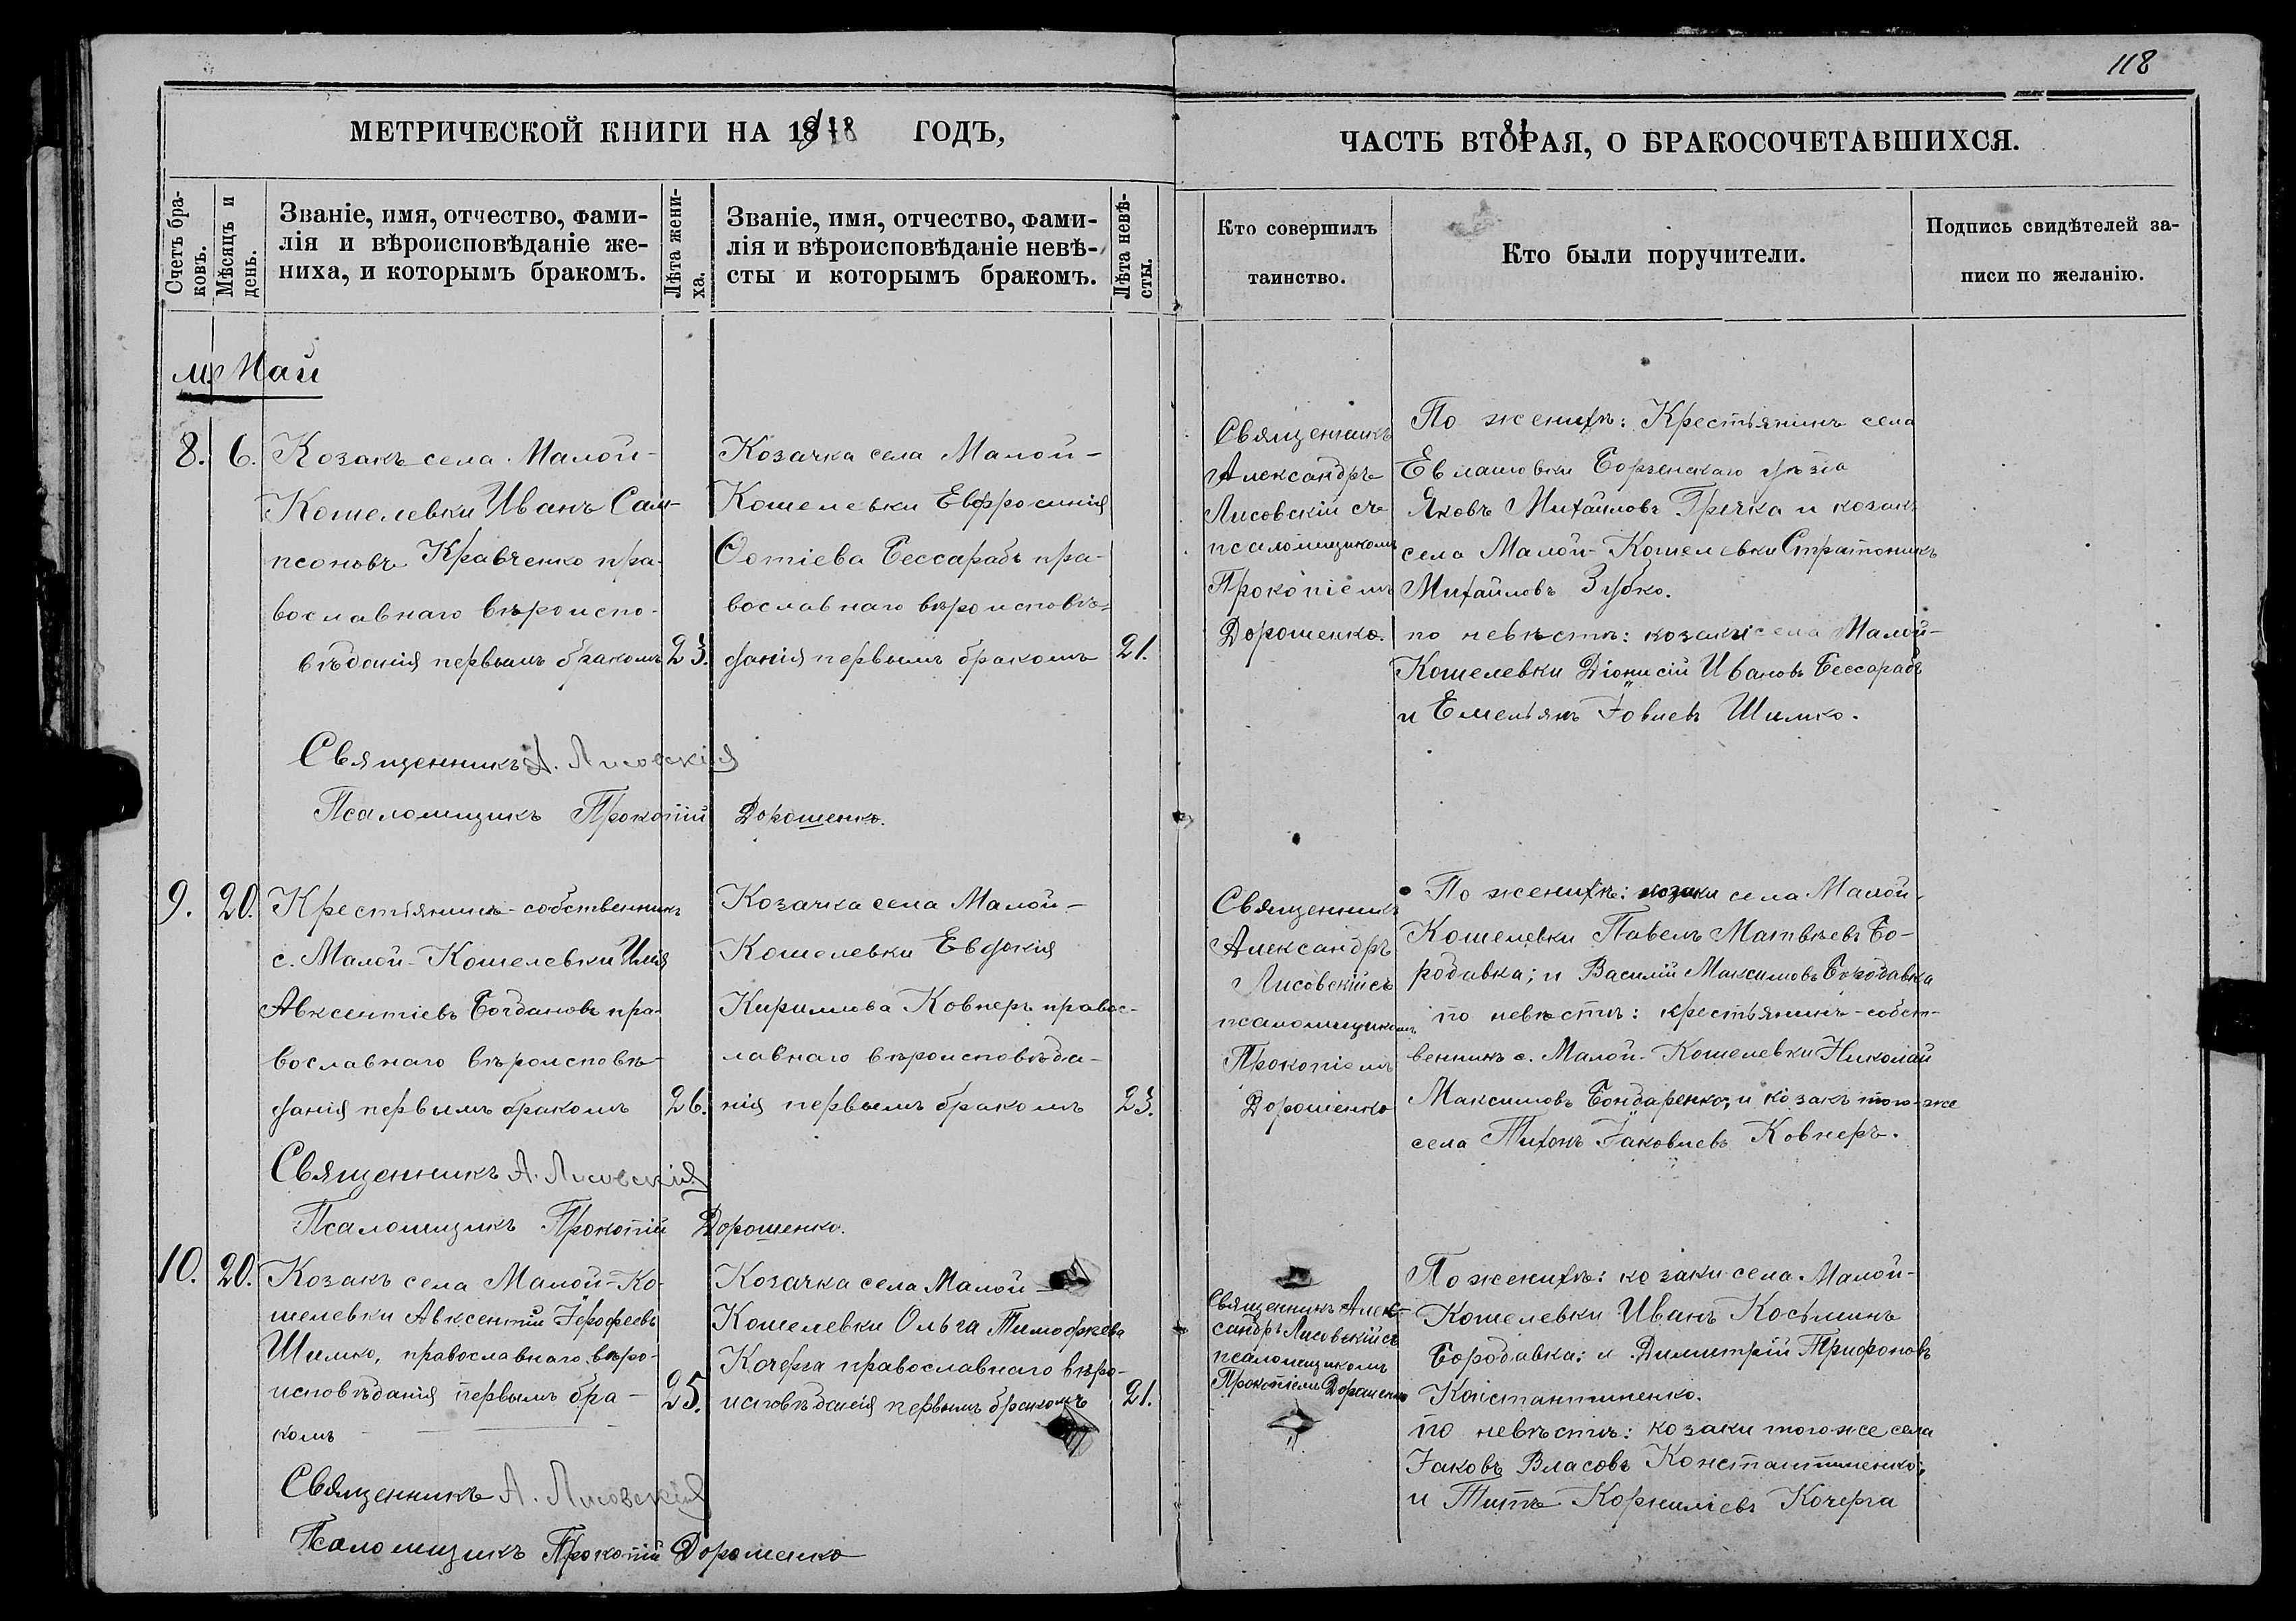 118
МЕТРИЧЕСКОЙ КНИГИ НА 1918 ГОДЪ,
ЧАСТЬ ВТОРАЯ, О БРАКОСОЧЕТАВШИХСЯ.
Счетъ бра-
ковъ.
Мѣсяцъ и
день.
Званіе, имя, отчество, фами-
лія и вѣроисповѣданіе же-
ниха, и которымъ бракомъ.
Лѣта жени-
ха.
Званіе, имя, отчество, фами-
лія и вѣроисповѣданіе невѣ-
сты и которымъ бракомъ.
Лѣта невѣ-
сты.
Кто совершилъ
таинство.
Кто были поручители.
Подпись свидѣтелей за-
писи по желанію.
м. Май
8. 6.
Козакъ села Малой-
Кошелевки Иванъ Сам-
псоновъ Кравченко пра-
вославнаго вѣроиспо-
вѣданія первымъ бракомъ 23.
Козачка села Малой-
Кошелевки Евфросинія
Фотіева Бессарабъ пра-
вославнаго вѣроисповѣ-
данія первымъ бракомъ 21.
Священникъ
Александръ
Лисовскій съ
псаломщикомъ
Прокопіемъ
Дорошенко.
По женихѣ: Крестьянинъ села
Евлашовки Борзенскаго уѣзда
Яковъ Михайловъ Гречка и козакъ
села Малой-Кошелевки Стратоникъ
Михайловъ Зубко.
по невѣстѣ: козаки села Малой-
Кошелевки Діонисій Ивановъ Бессарабъ
и Емельянъ Іовлевъ Шимко.
Священникъ А. Лисовскій
Псаломщикъ Прокопій Дорошенко.
9. 20.
Крестьянинъ-собственникъ
с. Малой-Кошелевки Илія
Авксентіевъ Богдановъ пра-
вославнаго вѣроисповѣ-
данія первымъ бракомъ 26.
Козачка села Малой-
Кошелевки Евдокія
Кириллова Ковнеръ правос-
лавнаго вѣроисповѣда-
нія первымъ бракомъ 23.
Священникъ
Александръ
Лисовскій съ
псаломщикомъ
Прокопіемъ
Дорошенко
По женихѣ: козаки села Малой-
Кошелевки Павелъ Матвѣевъ Бо-
родавка; и Василій Максимовъ Бородавка
по невѣстѣ: крестьянинъ-собст-
венникъ с. Малой-Кошелевки Николай
Максимовъ Бондаренко; и козакъ того-же
села Тихонъ Іаковлевъ Ковнеръ.
Священникъ А. Лисовскій
Псаломщикъ Прокопій Дорошенко.
10. 20.
Козакъ села Малой-Ко-
шелевки Авксентій Іерофеевъ
Шимко, православнаго вѣро-
исповѣданія первымъ бра-
комъ 25.
Козачка села Малой-
Кошелевки Ольга Тимофѣева
Кочерга православнаго вѣро-
исповѣданія первымъ бракомъ 21.
Священникъ Алек-
сандръ Лисовскій съ
псаломщикомъ
Прокопіемъ Дорошенко
По женихѣ: козаки села Малой-
Кошелевки Иванъ Косьминъ
Бородавка; и Димитрій Трифоновъ
Константиненко.
по невѣстѣ: козаки того же села
Іаковъ Власовъ Константиненко;
и Титъ Корниліевъ Кочерга
Священникъ А. Лисовскій
Псаломщикъ Прокопій Дорошенко